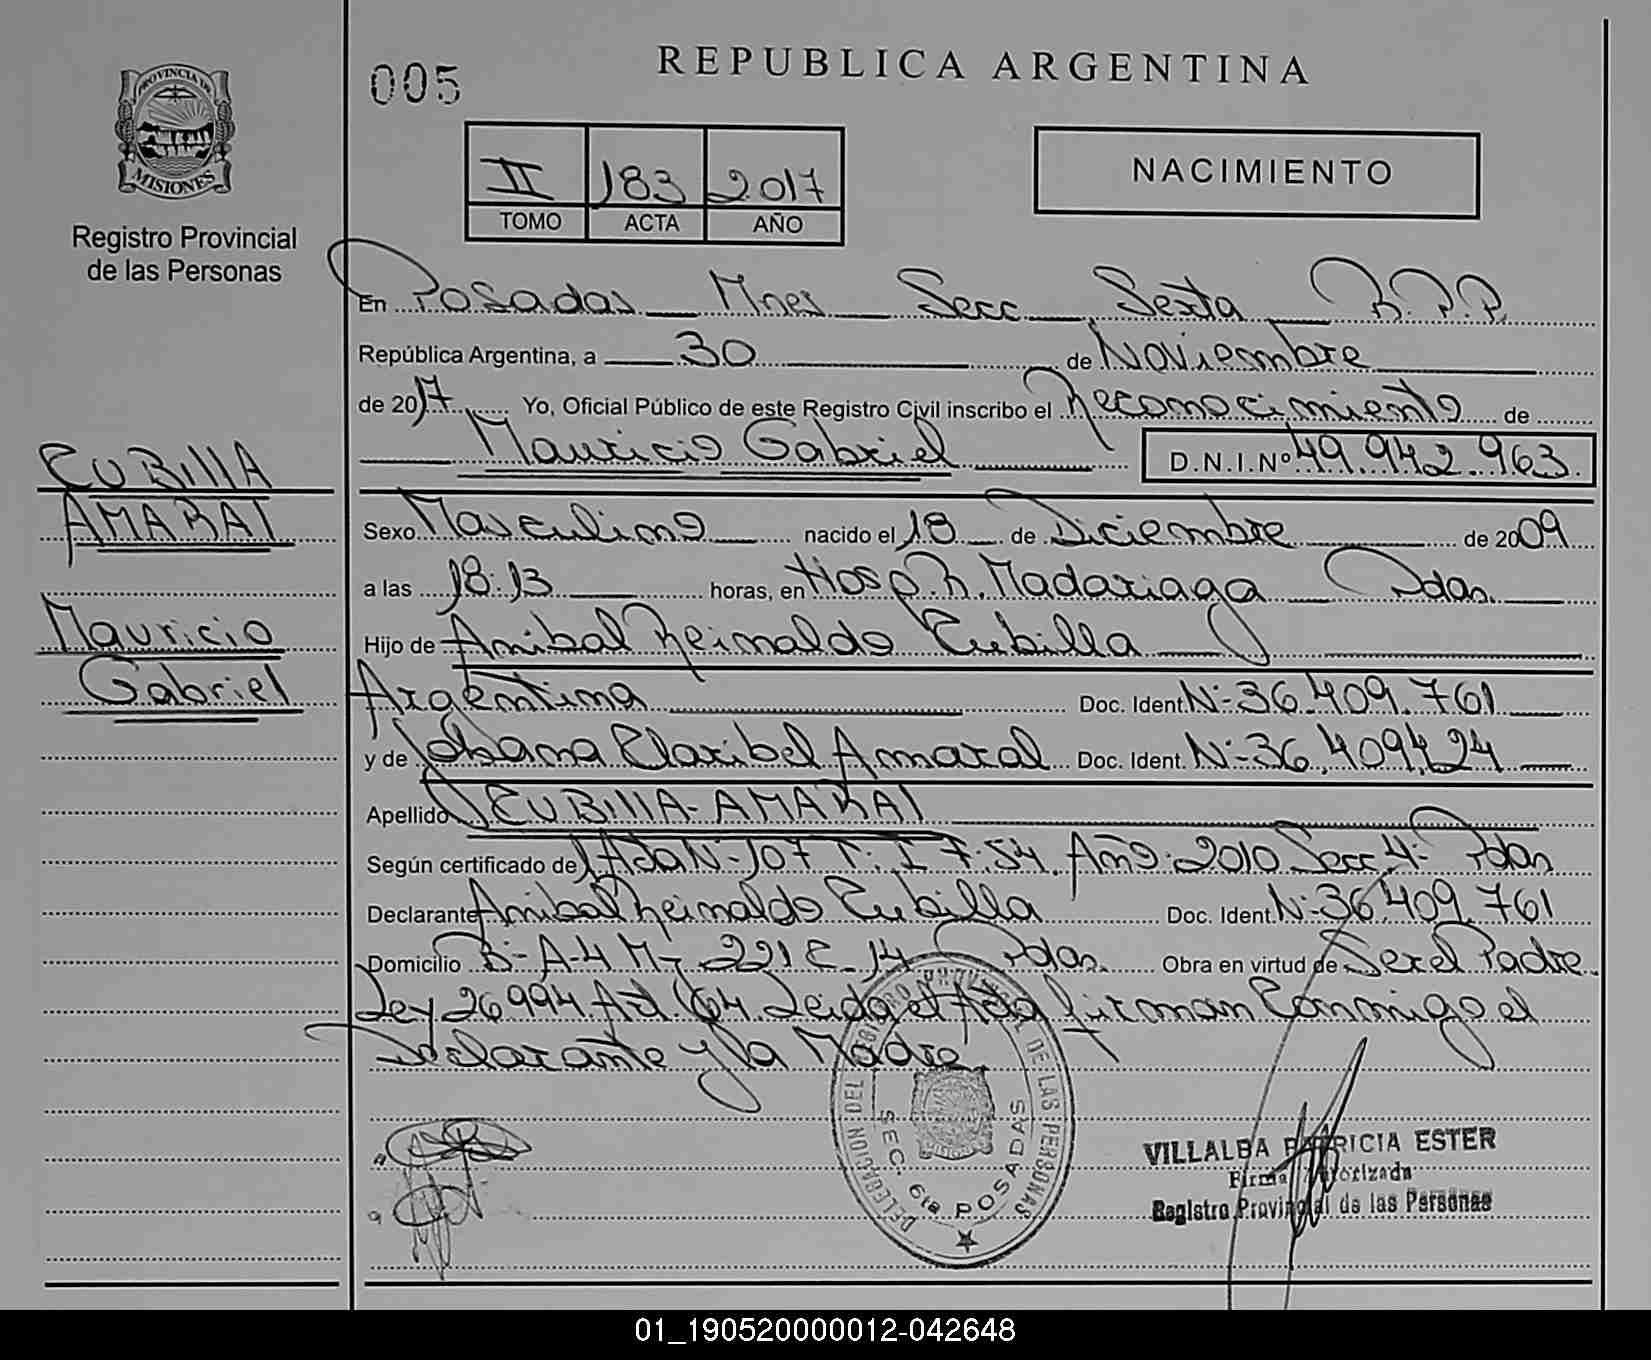 005
REPUBLICA ARGENTINA
PROVINCIA DE
MISIONES
Registro Provincial
de las Personas
II 183 2017
TOMO ACTA AÑO
NACIMIENTO
En Posadas Mnes Secc Sexta R.P.P.
República Argentina, a 30 de Noviembre
de 2017 Yo, Oficial Público de este Registro Civil inscribo el Reconocimiento de
Mauricio Gabriel D.N.I.Nº 49.942.963.
CUBIllA
AMARAl
Mauricio
Gabriel
Sexo Masculino nacido el 18 de Diciembre de 2009
a las 18:13 horas, en Hosp. R. Madariaga Pdas.
Hijo de Anibal Reinaldo Cubilla
Argentina Doc. Ident. Nº 36.409.761
y de Johana Claribel Amaral Doc. Ident. Nº 36.409.424
Apellido CUBIllA-AMARAl
Según certificado de Acta Nº 107 T: I F: 54 Año: 2010 Secc 4º Pdas
Declarante Anibal Reinaldo Cubilla Doc. Ident. Nº 36.409.761
Domicilio Bº A-4 Mz 221 C. 14 Pdas. Obra en virtud de Ser el Padre
Ley 26994 Art. 64 Leida el Acta firman Conmigo el
Declarante y la Madre.
DELEGACION DEL REGISTRO PROVINCIAL DE LAS PERSONAS
SEC. 6ta POSADAS
VILLALBA PATRICIA ESTER
Firma Autorizada
Registro Provincial de las Personas
01_190520000012-042648